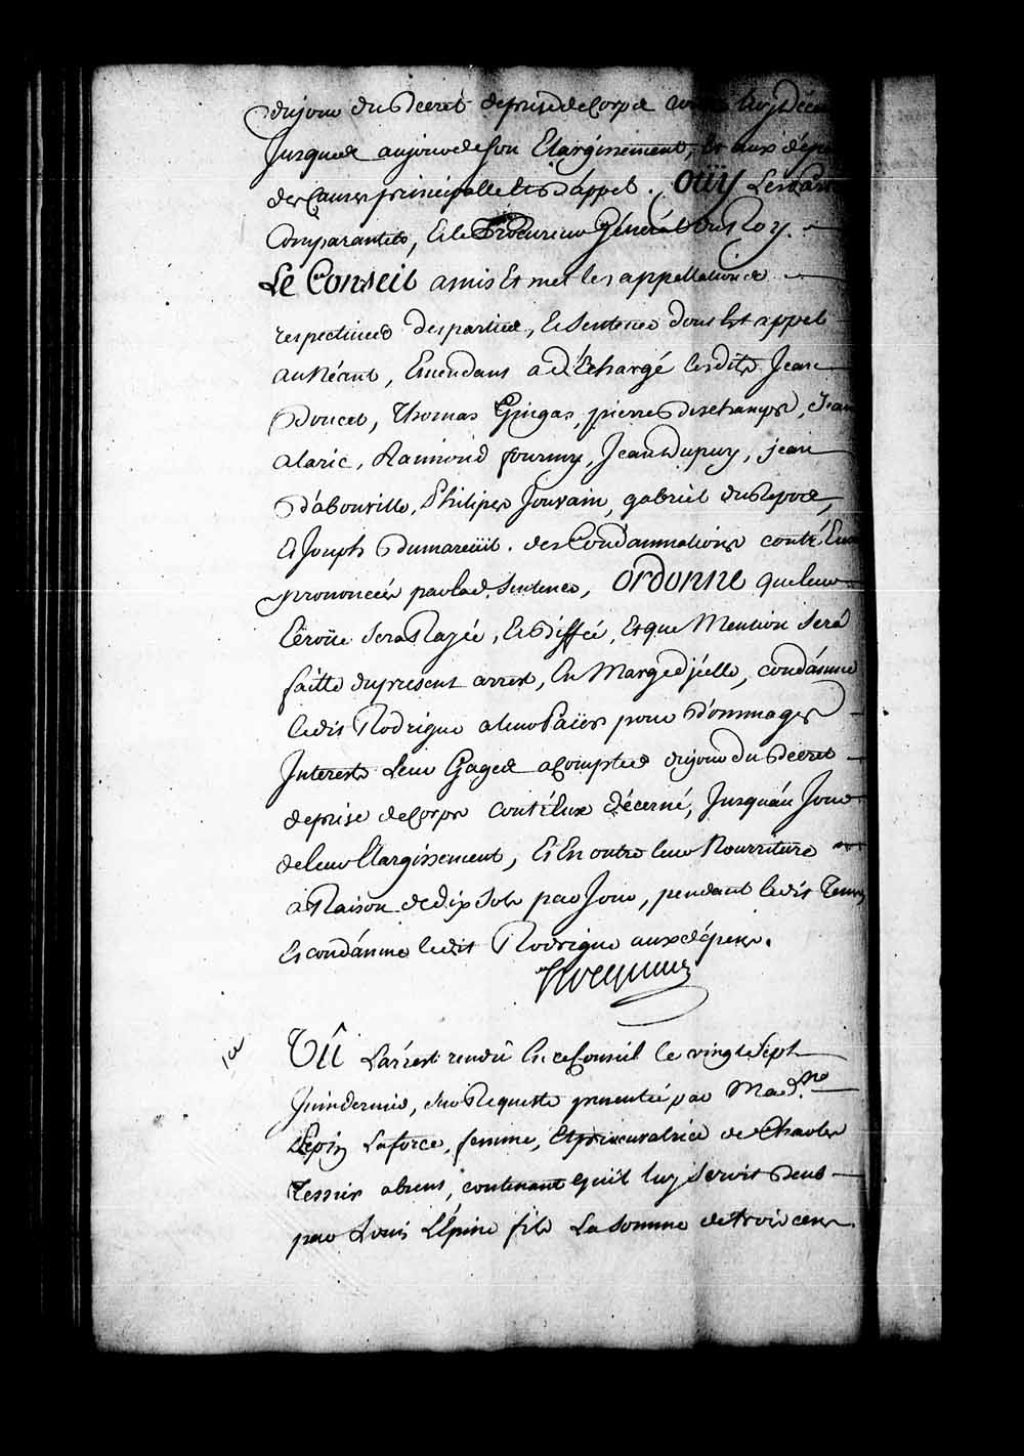 dujour du Decret deprise de Corps contre luy Déce
Jusques aujour de son Elargissement, Et aux dépen
des Causes principalle et D'appel. Oüy Les Par
Comparantes, Et le Procureur Général du Roy.
Le Conseil a mis Et met les appellations
respectives des parties, Et Sentence dont Est appel
au Néant, Emendant a déchargé lesdits Jean
Doucet, Thomas Gingas, pierre Deschamps, Jean
alaric, Raimond fourmy, Jean Dupuy, jean
D'abouville, Philipes Jouvain, gabriel
Et Joseph Dumareüil. des Condamnations contr'Eux
prononcées par lad. Sentence, ordonne que leur
Ecroüe sera Rayée, Et Biffée, Et que Mention Sera
faitte du present arrest, En Marge d'jcelle, condamne
ledit Rodrigue a leur Païer pour Dommages
Interests Leur Gages acompter dujour du Decret
deprise de Corps contr'Eux décerné, Jusqu'au Jour
de leur Elargissement, Et En outre leur Nourriture
a Raison de dix Sols par Jour, pendant ledit Tems
Et condamne ledit Rodrigue aux dépens.
Hocquart
Vû L'arrest rendu En ce Conseil le vingt Sept
Juin dernier, Sur Requeste presentée par Mad.ne
Pepin Laforce, femme, Et procuratrice de Charles
Tessier absent, contenant qu'il luy seroit Deub
par Louis L'Epine fils La Somme de trois cens